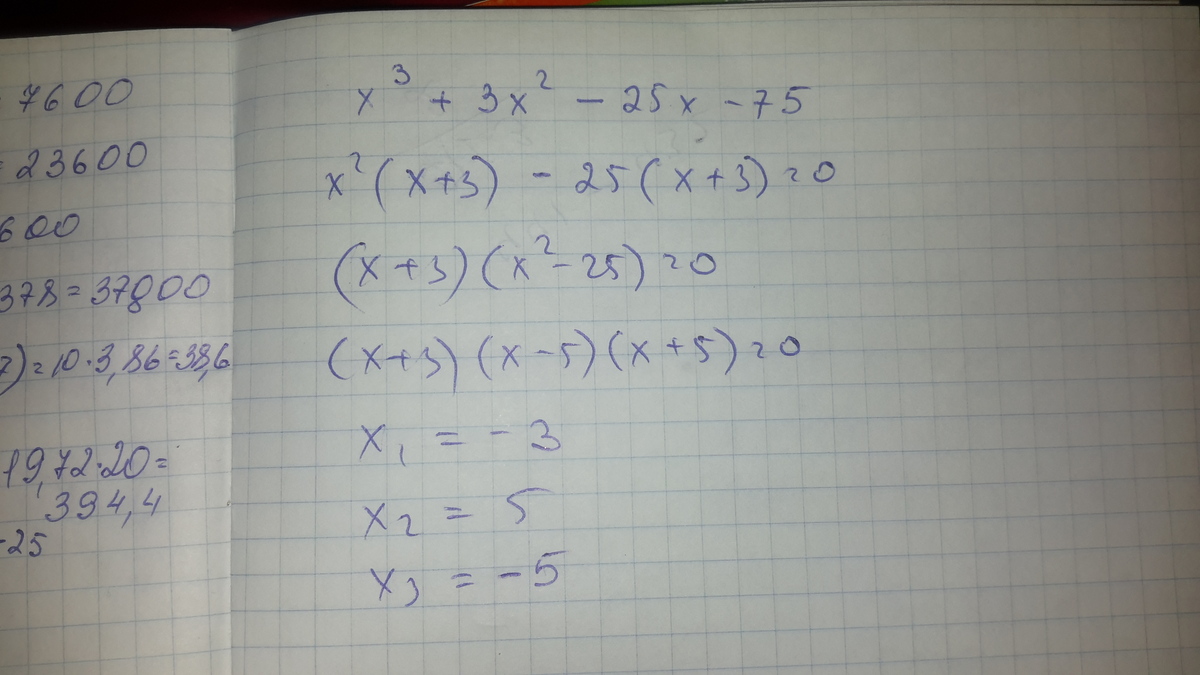 7600
= 23600
600
378 = 37800
7) = 10·3,86 = 38,6
19,72·20 =
394,4
-25
x³ + 3x² - 25x - 75
x²(x+3) - 25(x+3) = 0
(x+3)(x²-25) = 0
(x+3)(x-5)(x+5) = 0
x₁ = -3
x₂ = 5
x₃ = -5